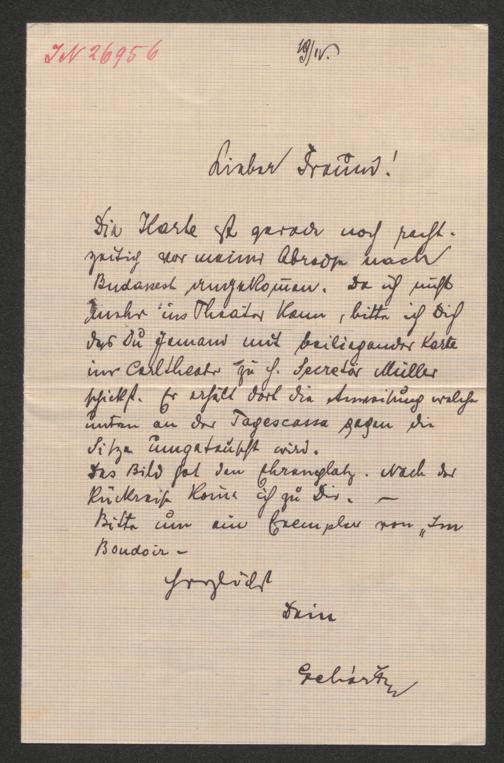 IN 26956
19/IV.
Lieber Freund!
Die Karte ist gerade noch recht-
zeitig vor meiner Abreise nach
Budapest angekommen. Da ich nicht
mehr ins Theater kann, bitte ich Dich
daß Du jemand mit beiliegender Karte
ins Carltheater zu H. Secretär Müller
schickst. Er erhält dort die Anweisung welche
unten an der Tagescassa gegen die
Sitze umgetauscht wird.
Das Bild hat den Ehrenplatz. Nach der
Rückreise komme ich zu Dir. —
Bitte um ein Exemplar von „Im
Boudoir –
Herzlichst
Dein